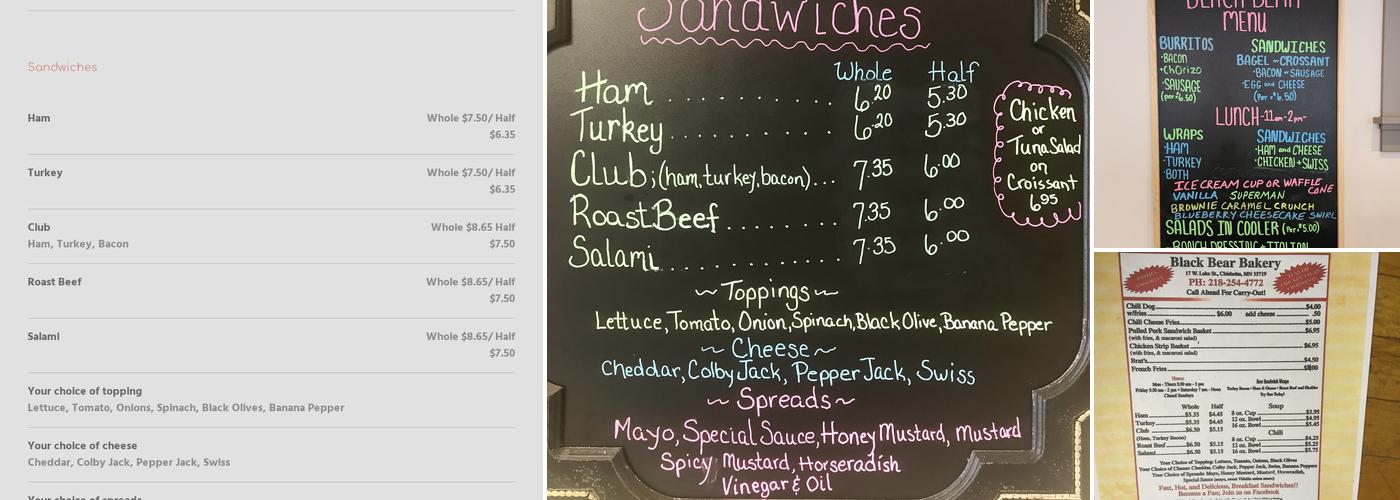 Sandwiches
Ham
Whole $7.50/ Half
$6.35
Turkey
Whole $7.50/ Half
$6.35
Club
Whole $8.65 Half
Ham, Turkey, Bacon
$7.50
Roast Beef
Whole $8.65/ Half
$7.50
Salami
Whole $8.65/ Half
$7.50
Your choice of topping
Lettuce, Tomato, Onions, Spinach, Black Olives, Banana Pepper
Your choice of cheese
Cheddar, Colby Jack, Pepper Jack, Swiss
Your choice of spreads
Sandwiches
Whole Half
Ham 6.20 5.30
Turkey 6.20 5.30
Club; (ham, turkey, bacon)... 7.35 6.00
Roast Beef 7.35 6.00
Salami 7.35 6.00
Chicken
or
Tuna Salad
on
Croissant
6.95
~Toppings~
Lettuce, Tomato, Onion, Spinach, Black Olive, Banana Pepper
~Cheese~
Cheddar, Colby Jack, Pepper Jack, Swiss
~Spreads~
Mayo, Special Sauce, Honey Mustard, Mustard
Spicy Mustard, Horseradish
Vinegar & Oil
BLACK BEAR
MENU
BURRITOS
·BACON
·ChOrizo
·SAUSAGE
(per $6.50)
SANDWICHES
BAGEL or CROSSANT
·BACON or SAUSAGE
·EGG and CHEESE
(Per $6.50)
LUNCH -11am-2pm-
WRAPS
·HAM
·TURKEY
·BOTH
SANDWICHES
·HAM and CHEESE
·CHICKEN + SWISS
ICE CREAM CUP OR WAFFLE CONE
VANILLA SUPERMAN
BROWNIE CARAMEL CRUNCH
BLUEBERRY CHEESECAKE SWIRL
SALADS IN COOLER (Per $5.00)
RANCH DRESSING + ITALIAN
Black Bear Bakery
17 W. Lake St., Chisholm, MN 55719
PH: 218-254-4772
Call Ahead For Carry-Out!
Chili Dog $4.00
w/fries $6.00 add cheese .50
Chili Cheese Fries $5.00
Pulled Pork Sandwich Basket $6.95
(with fries, & macaroni salad)
Chicken Strip Basket $6.95
(with fries, & macaroni salad)
Brat's $4.50
French Fries
Hours
Mon - Thurs 5:30 am - 3 pm
Friday 5:30 am - 2 pm + Saturday 7 am - Noon
Closed Sundays
Try One Today!
Whole Half
Ham $5.35 $4.45
Turkey $5.35 $4.45
Club $6.50 $5.15
(Ham, Turkey Bacon)
Roast Beef $6.50 $5.15
Salami $6.50 $5.15
Soup
8 oz. Cup $3.95
12 oz. Bowl $4.95
16 oz. Bowl $5.45
Chili
8 oz. Cup $4.25
12 oz. Bowl $5.25
16 oz. Bowl $5.75
Your Choice of Topping: Lettuce, Tomato, Onions, Black Olives
Your Choice of Cheese: Cheddar, Colby Jack, Pepper Jack, Swiss, Banana Peppers
Your Choice of Spreads: Mayo, Honey Mustard, Mustard, Horseradish,
Fast, Hot, and Delicious, Breakfast Sandwiches!!
Become a Fan; Join us on Facebook